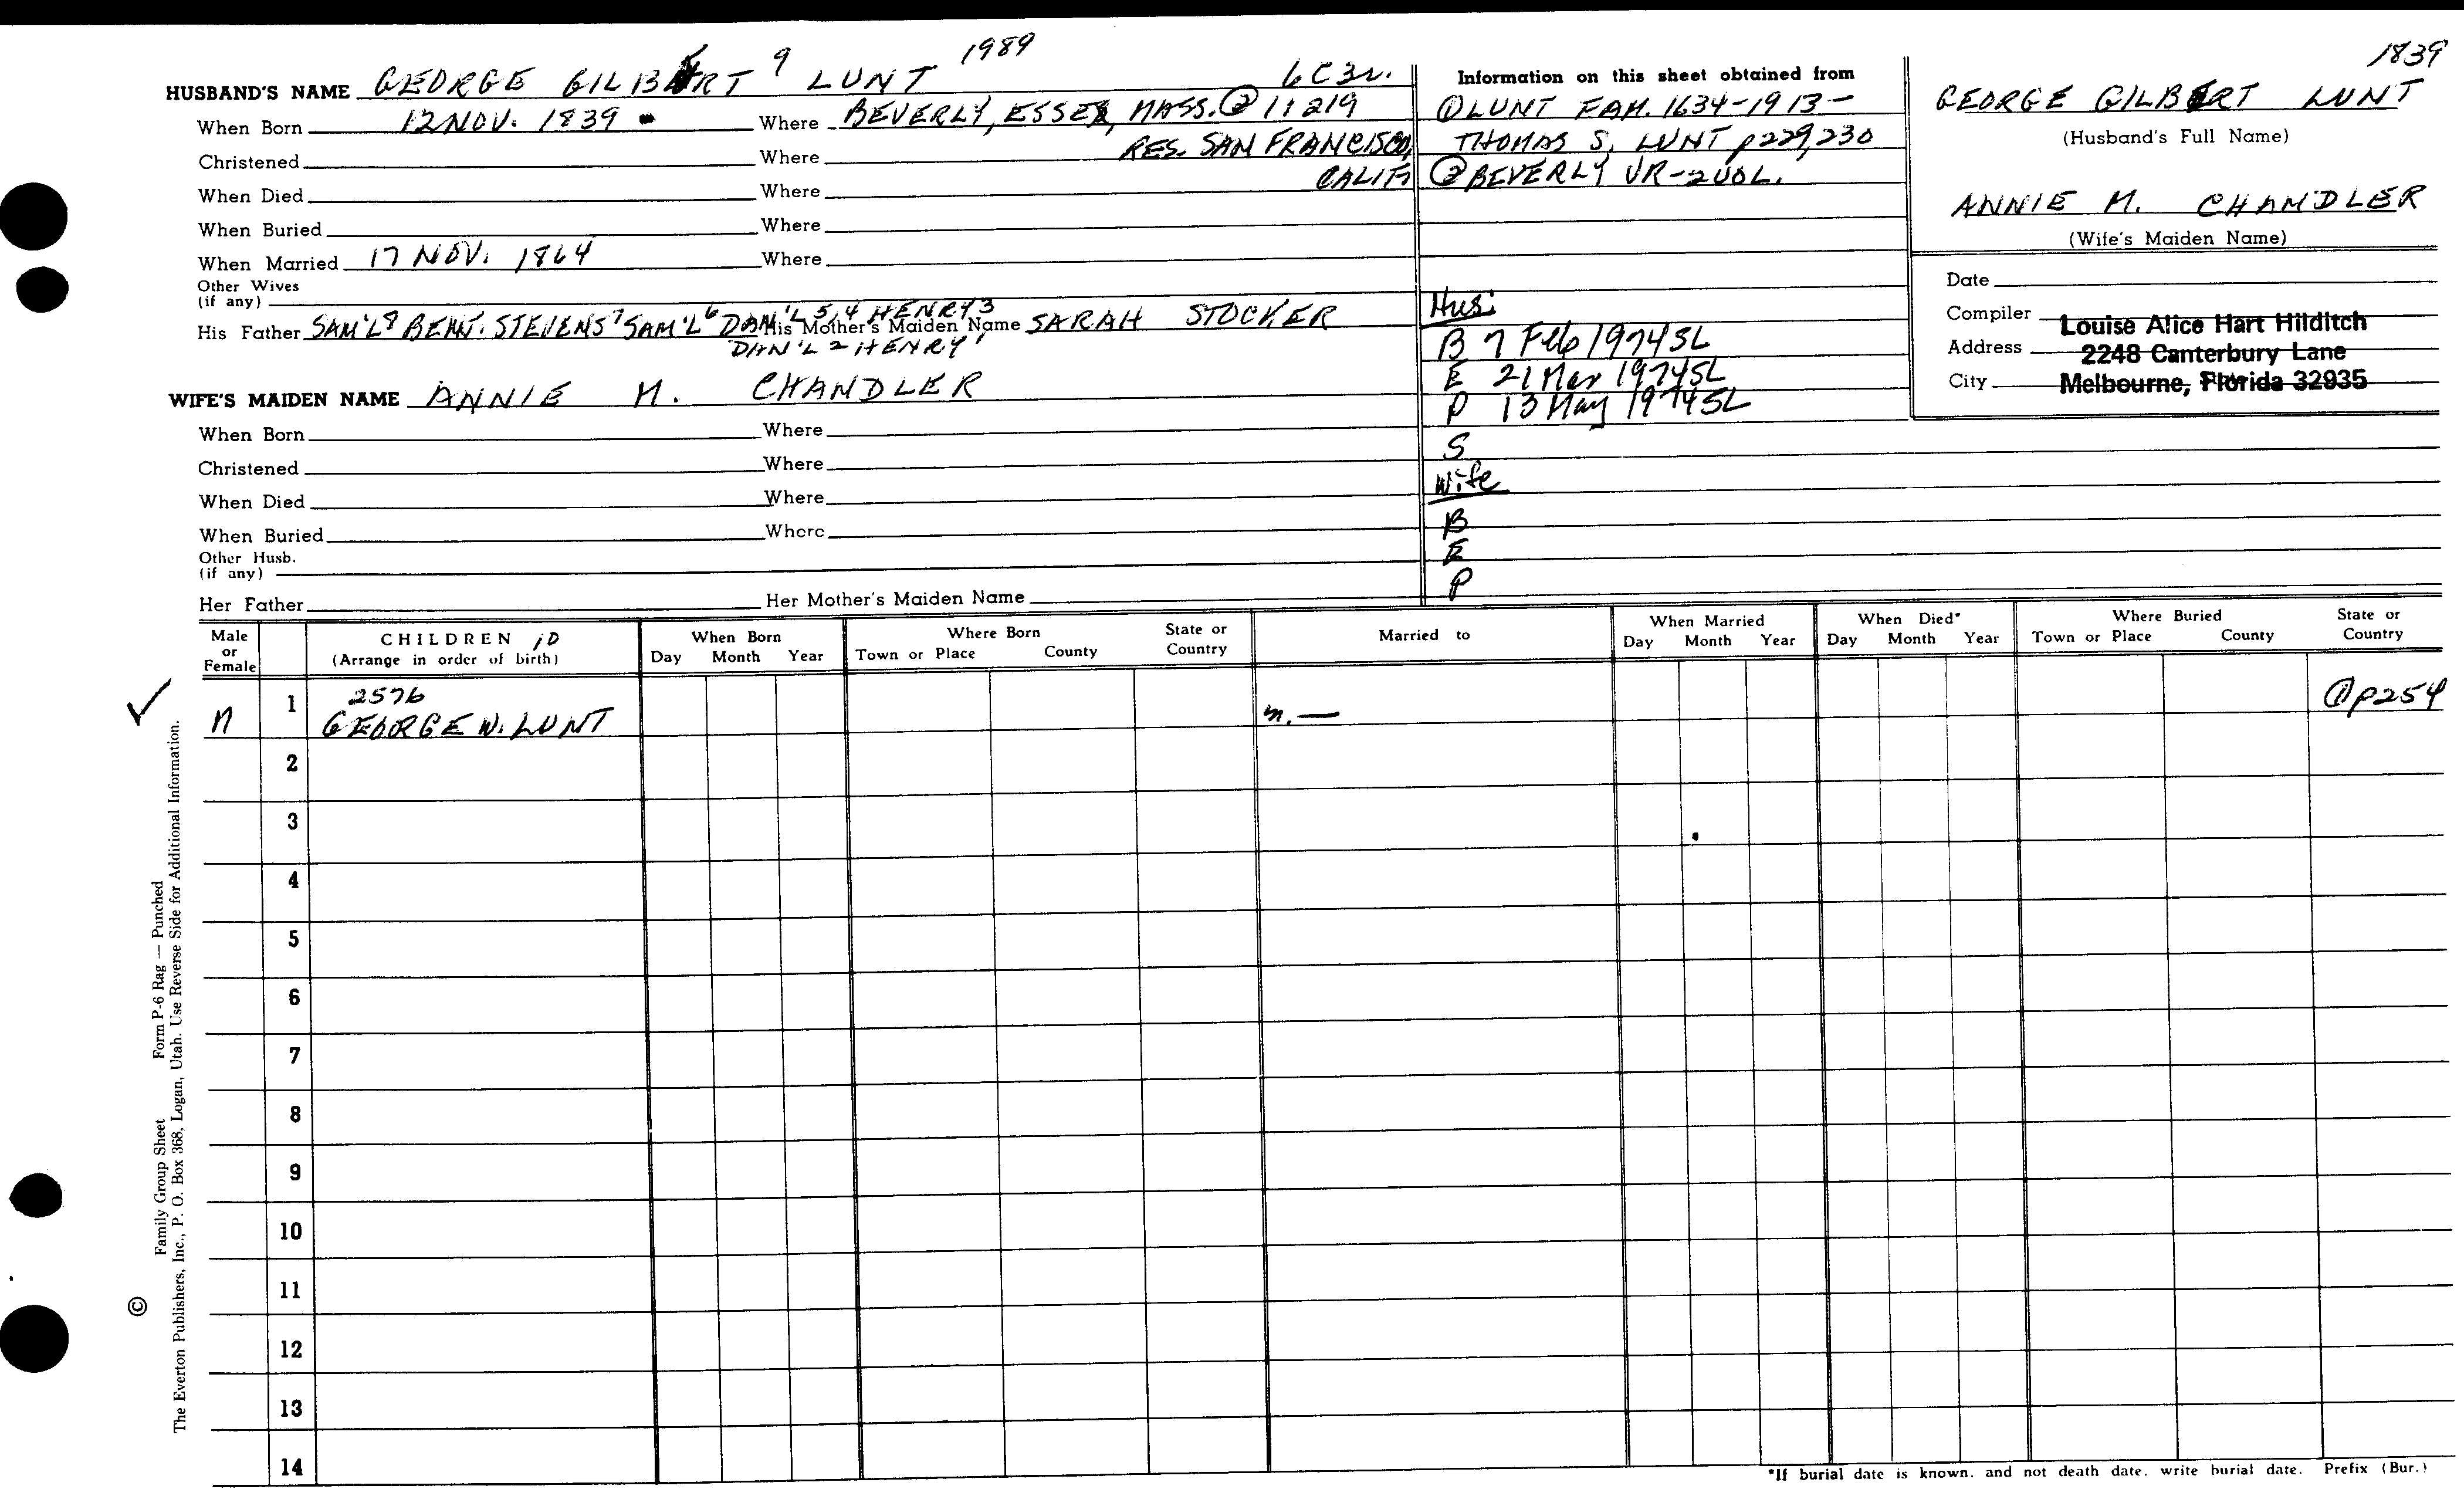 1989
1839
HUSBAND'S NAME GEORGE GILBERT 9 LUNT 6C3r.
When Born 12 NOV. 1839 Where BEVERLY, ESSEX, MASS. ② 1:219
Christened Where RES. SAN FRANCISCO,
When Died Where CALIF.
When Buried Where
When Married 17 NOV. 1864 Where
Other Wives
(if any)
His Father SAM'L8 BENJ. STEVENS7 SAM'L6 DAN'L5,4 HENRY3 His Mother's Maiden Name SARAH STOCKER
DAN'L2 HENRY1
WIFE'S MAIDEN NAME ANNIE M. CHANDLER
When Born Where
Christened Where
When Died Where
When Buried Where
Other Husb.
(if any)
Her Father Her Mother's Maiden Name
Information on this sheet obtained from
① LUNT FAM. 1634-1913-
THOMAS S. LUNT p229,230
② BEVERLY VR-2VOL.
Hus:
B 7 Feb 1974 SL
E 21 Mar 1974 SL
P 13 May 1974 SL
S
Wife
B
E
P
GEORGE GILBERT LUNT
(Husband's Full Name)
ANNIE M. CHANDLER
(Wife's Maiden Name)
Date
Compiler Louise Alice Hart Hilditch
Address 2248 Canterbury Lane
City Melbourne, Florida 32935
Male or Female CHILDREN ID (Arrange in order of birth) When Born Day Month Year Where Born Town or Place County State or Country Married to When Married Day Month Year When Died* Day Month Year Where Buried Town or Place County State or Country
M 1 2576 GEORGE W. LUNT m. — ① p254
2
3
4
5
6
7
8
9
10
11
12
13
14
*If burial date is known, and not death date, write burial date. Prefix (Bur.)
© Family Group Sheet Form P-6 Rag — Punched
The Everton Publishers, Inc., P. O. Box 368, Logan, Utah. Use Reverse Side for Additional Information.